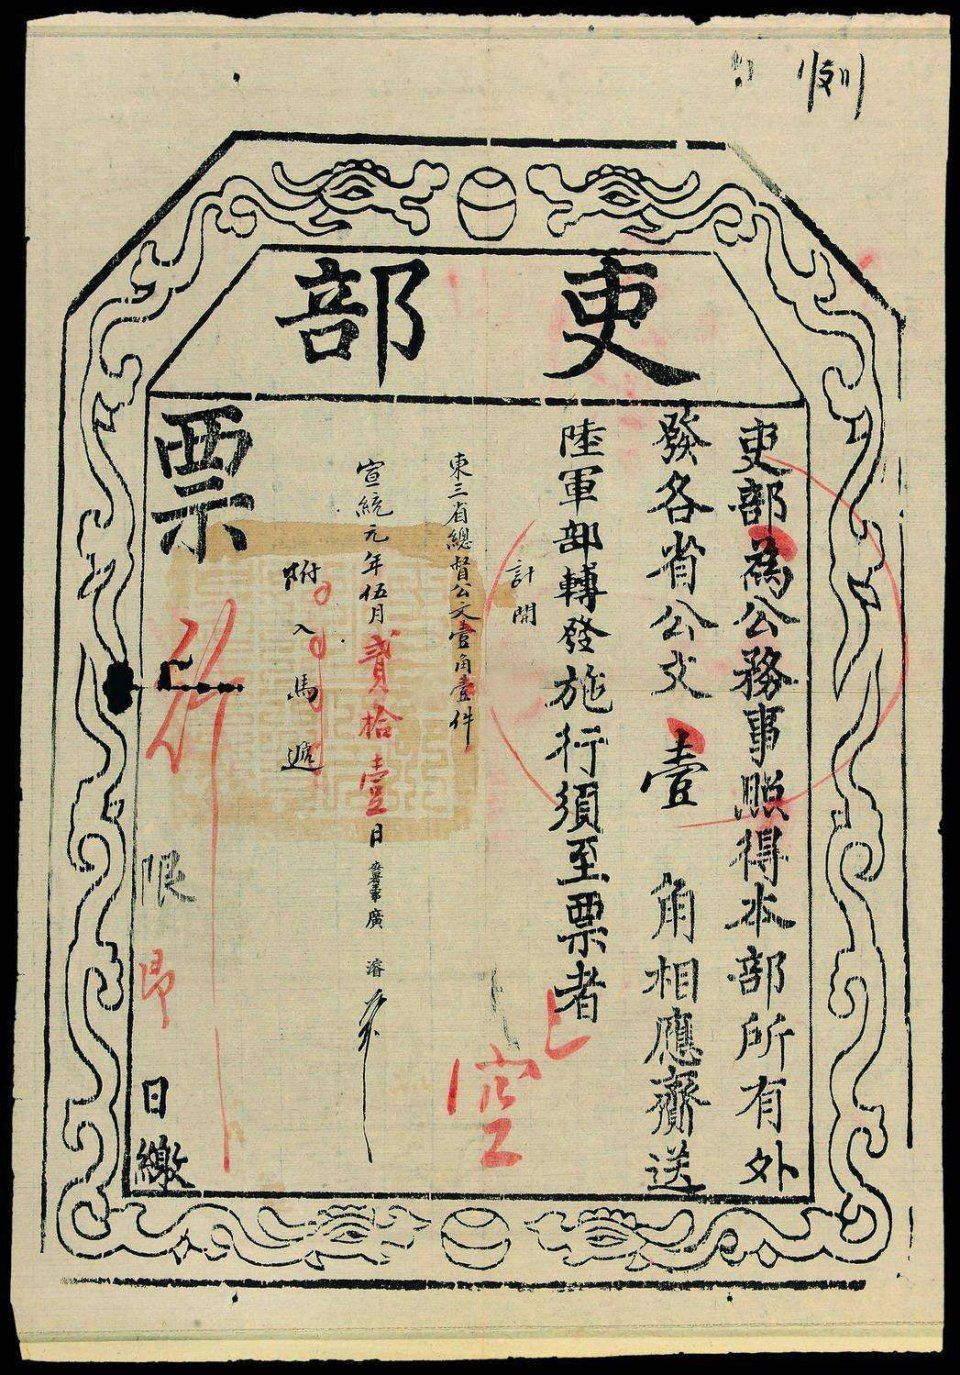 例
吏部
吏部為公務事照得本部所有外
發各省公文壹角相應齎送
陸軍部轉發施行須至票者
計開
東三省總督公文壹角壹件
宣統元年伍月貳拾壹日
廣濬
附入馬遞
票
行
限即日繳